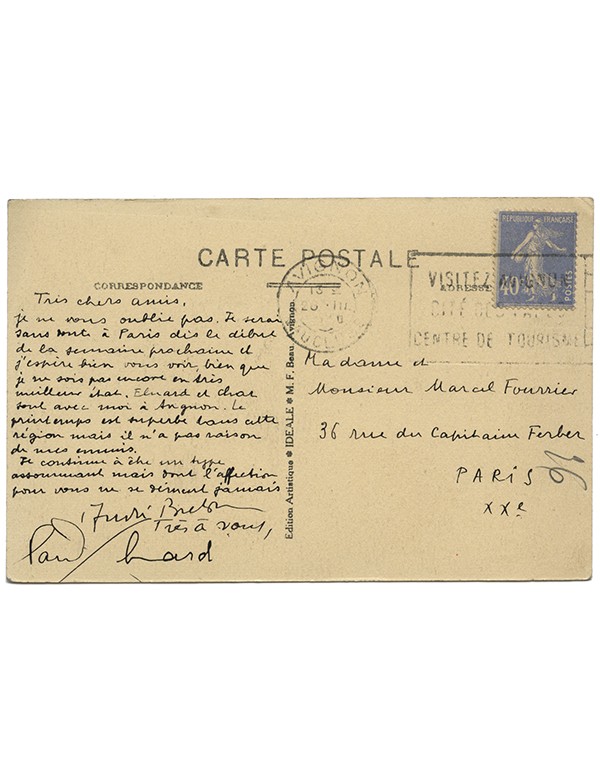 CARTE POSTALE
CORRESPONDANCE
ADRESSE
REPUBLIQUE FRANÇAISE
40c
POSTES
AVIGNON
VAUCLUSE
VISITEZ AVIGNON
CITÉ DES PAPES
CENTRE DE TOURISME
Très chers amis,
je ne vous oublie pas. Je serai
sans doute à Paris dès le début
de la semaine prochaine et
j'espère bien vous voir, bien que
je ne sois pas encore en très
meilleur état. Eluard et Char
sont avec moi à Avignon. Le
printemps est superbe dans cette
région mais il n'a pas raison
de mes ennuis.
Je continue à être un type
assommant mais dont l'affection
pour vous ne se dément jamais
André Breton
Très à vous,
Paul Eluard
Edition Artistique * IDEALE * M. F. Beau, Avignon.
Madame et
Monsieur Marcel Fourrier
36 rue du Capitaine Ferber
PARIS
XXe